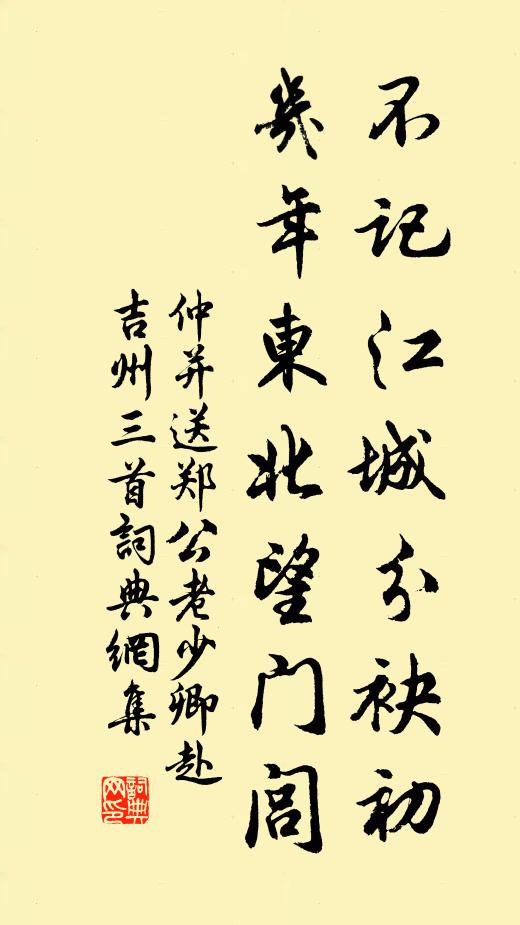 不记江城分袂初
幾年東北望门闾
仲并送郑公老少卿赴
吉州三首詞典網集
詞典
网印